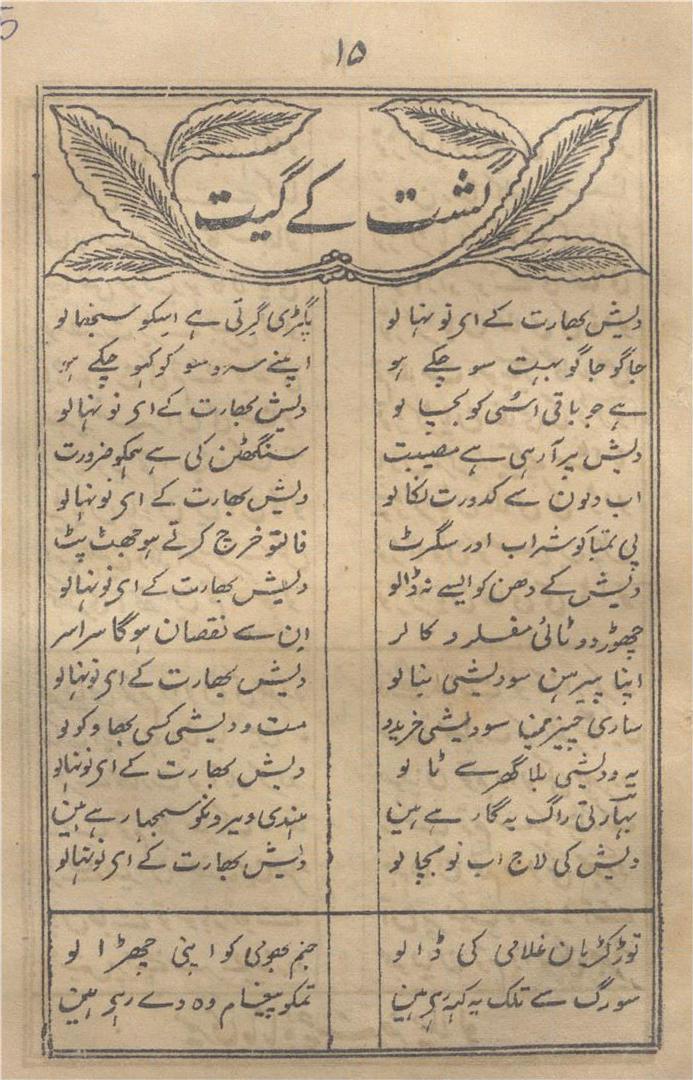 ۱۵
گشت کے گیت
دیش بھارت کے ای نونہالو پگڑی گرتی ہے اسکو سنبھالو
جاگو جاگو بہت سو چکے ہو اپنے سروسو کو کھو چکے ہو
ہے جو باقی اسی کو بچا لو دیش بھارت کے ای نونہالو
دیش پر آ رہی ہے مصیبت سنگھٹن کی ہے ہمکو ضرورت
اب دلون سے کدورت نکالو دیش بھارت کے ای نونہالو
پی تمباکو شراب اور سگرٹ فالتو خرچ کرتے ہو جھٹ پٹ
دیش کے دھن کو ایسے نہ ڈالو دیش بھارت کے ای نونہالو
چھوڑ دو ٹائی مفلر و کالر ان سے نقصان ہوگا سراسر
اپنا پیرہن سودیشی بنا لو دیش بھارت کے ای نونہالو
ساری چیز سودیشی خریدو مت ودیشی کسی بھاؤ کو لو
یہ ودیشی بلا گھر سے ٹالو دیش بھارت کے ای نونہالو
بھارتی راگ یہ گا رہے ہین ہندی ویرونکو سمجھا رہے ہین
دیش کی لاج اب تو بچا لو دیش بھارت کے ای نونہالو
توڑ کڑیان غلامی کی ڈالو جنم بھومی کو اپنی چھڑا لو
سورگ سے تلک یہ کہہ رہی ہین تمکو پیغام وہ دے رہی ہین